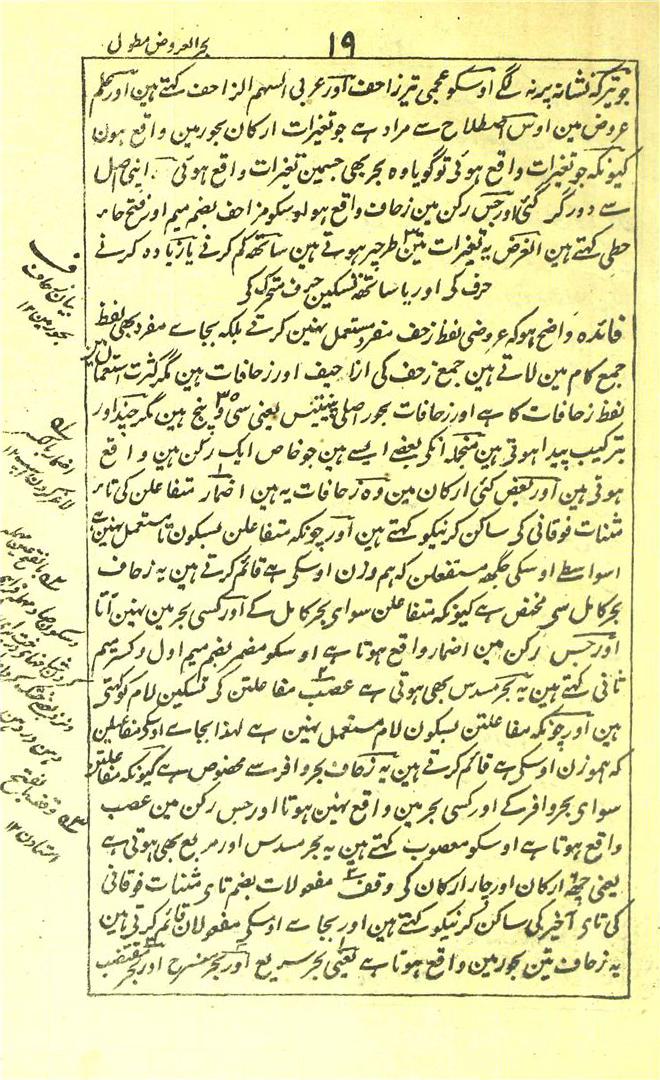 ۱۹
بحر العروض مطول
جو تیر کہ نشانہ پر نہ لگے اوسکو عجمی تیر زاحف اور عربی السہم الزاحف کہتے ہین اور علم
عروض مین اوس اصطلاح سے مراد ہے جو تغیرات ارکان بحور مین واقع ہون
کیونکہ جو تغیرات واقع ہوئی تو گویا وہ بحر بھی جسمین تغیرات واقع ہوئی اپنی اصل
سے دور گر گئی اور جس رکن مین زحاف واقع ہو اوسکو مزاحف بضم میم اور فتح حاء
حطی کہتے ہین الغرض یہ تغیرات تین طرحپر ہوتے ہین ساتھ کم کرنے یا زیادہ کرنے
حرف کی اور یا ساتھ تسکین حرف متحرک کی
فائدہ واضح ہو کہ عروضی لفظ زحف منفرد مستعمل نہین کرتے بلکہ بجاے مفرد بھی لفظ
جمع کام مین لاتے ہین جمع زحف کی ازاحیف اور زحافات ہین مگر کثرت استعمال مین
لفظ زحافات کا ہے اور زحافات بحور اصلی پینتیس یعنی سی و پنج ہین مگر چند اور
بترکیب پیدا ہوتی ہین منجملہ انکی بعضے ایسے ہین جو خاص ایک رکن مین واقع
ہوتی ہین اور بعض کئی ارکان مین وہ زحافات یہ ہین اضمار متفاعلن کی تاء
مثنات فوقانی کی ساکن کرنیکو کہتے ہین اور چونکہ متفاعلن بسکون تا مستعمل نہین ہے
اسواسطے اوسکی جگہہ مستفعلن کہ ہم وزن اوسکی ہے قائم کرتے ہین یہ زحاف
بحر کامل سی مختص ہے کیونکہ متفاعلن سوای بحر کامل کے اور کسی بحر مین نہین آتا
اور جس رکن مین اضمار واقع ہوتا ہے اوسکو مضمر بضم میم اول و کسر میم
ثانی کہتے ہین یہ بحر مسدس بھی ہوتی ہے عصب مفاعلتن کی تسکین لام کو کہتی
ہین اور چونکہ مفاعلتن بسکون لام مستعمل نہین ہے لہذا بجاے اوسکو مفاعیلن
کہ ہموزن اوسکی ہے قائم کرتے ہین یہ زحاف بحر وافر سے مخصوص ہے کیونکہ مفاعلتن
سوای بحر وافر کے اور کسی بحر مین واقع نہین ہوتا اور جس رکن مین عصب
واقع ہوتا ہے اوسکو معصوب کہتے ہین یہ بحر مسدس اور مربع بھی ہوتی ہے
یعنی چھہ ارکان اور چار ارکان کی وقف مفعولات بضم تای مثنات فوقانی
کی تای آخیر کی ساکن کرنیکو کہتے ہین اور بجاے اوسکی مفعولان قائم کرتی ہین
یہ زحاف تین بحور مین واقع ہوتا ہے یعنی بحر سریع اور بحر منسرح اور بحر مقتضب
ف
بیان زحافات
بحور مین ۱۲
اضمار بالکسر
لاغر کردن
وقف بالفتح
استادن ۱۲